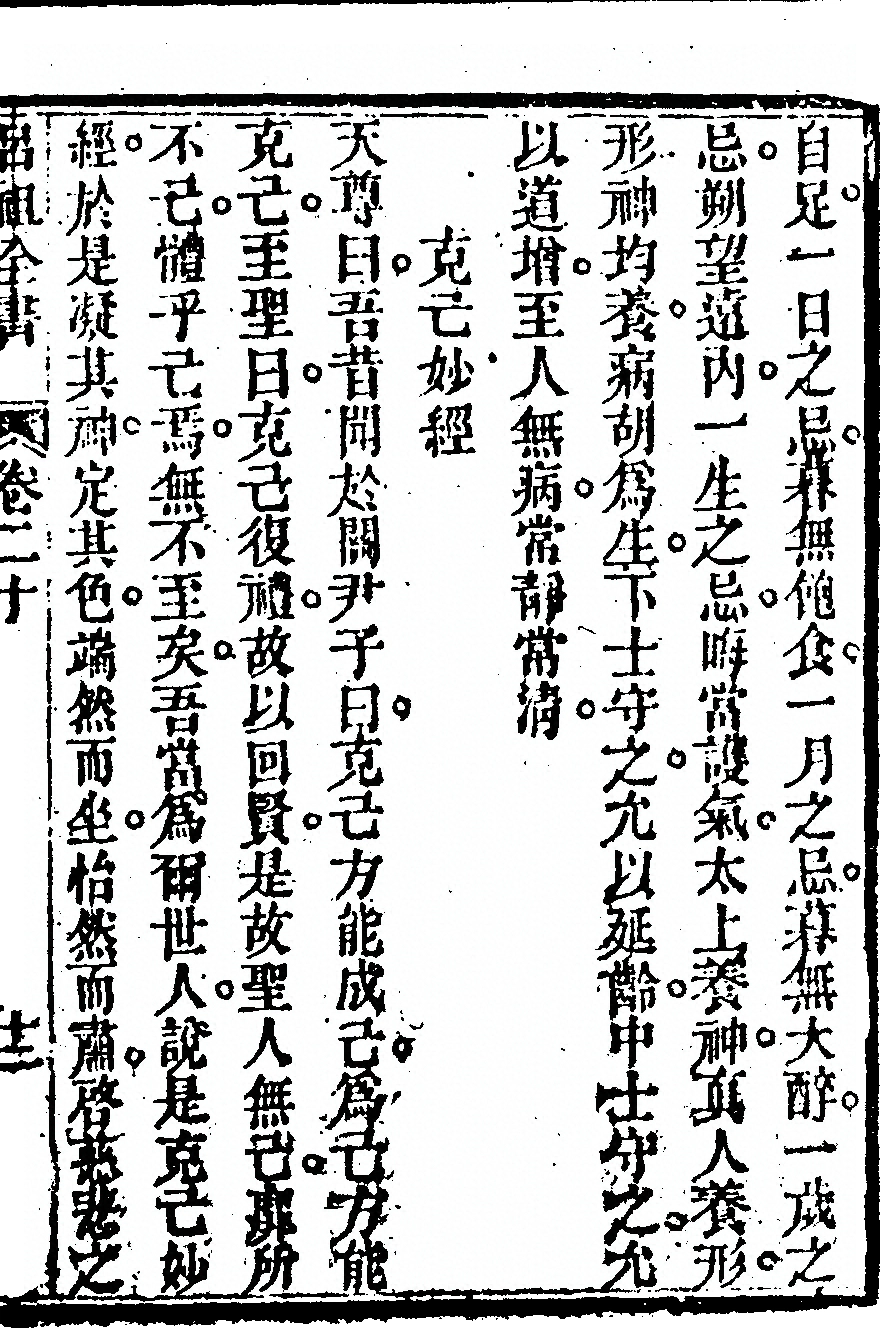 自足一日之忌暮無飽食一月之忌暮無大醉一歲之
忌朔望遠內一生之忌晦當護氣太上養神真人養形
形神均養病胡為生下士守之允以延齡中士守之允
以道增至人無病常靜常清
克己妙經
天尊曰吾昔聞於關尹子曰克己方能成己為己方能
克己至聖曰克己復禮故以回賢是故聖人無己靡所
不己體乎己焉無不至矣吾當為爾世人說是克己妙
經於是凝其神定其色端然而坐怡然而肅啓慈悲之
呂祖全書
卷二十
十三